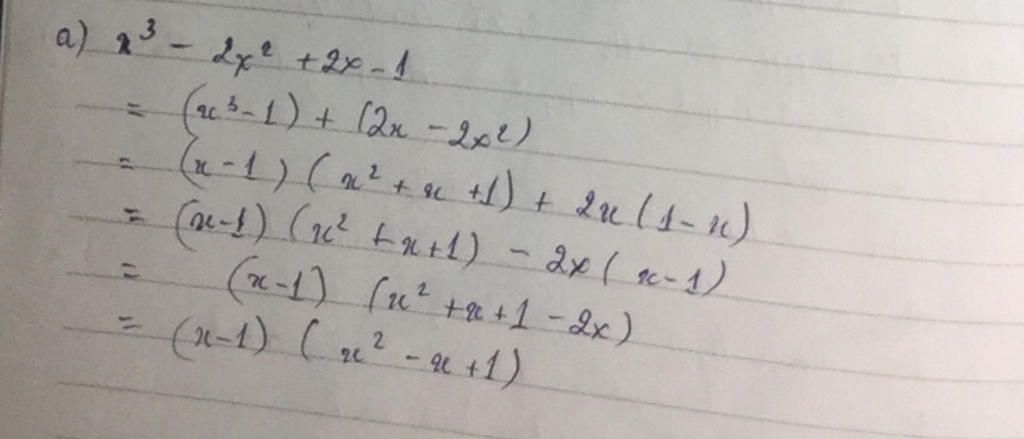 a) x³ - 2x² + 2x - 1
= (x³ - 1) + (2x - 2x²)
= (x - 1) (x² + x + 1) + 2x (1 - x)
= (x - 1) (x² + x + 1) - 2x (x - 1)
= (x - 1) (x² + x + 1 - 2x)
= (x - 1) (x² - x + 1)